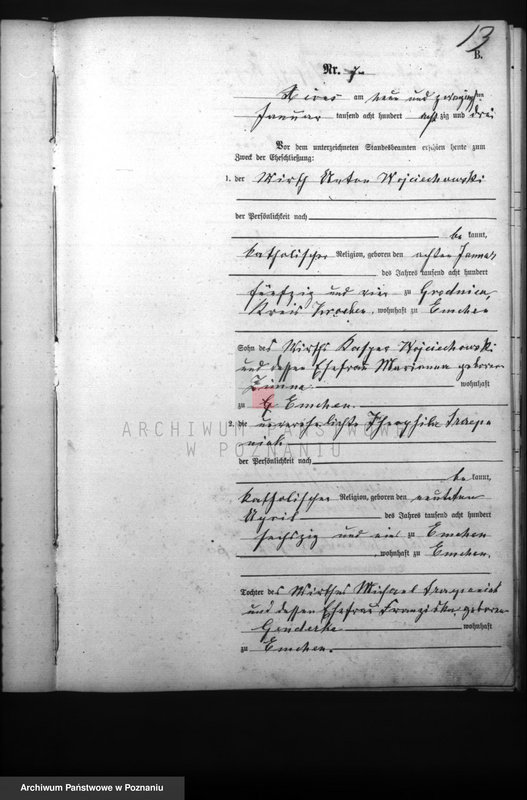 13
B.
Nr. 7.
Xions am neun und zwanzigsten
Januar tausend acht hundert achtzig und drei
Vor dem unterzeichneten Standesbeamten erschienen heute zum
Zweck der Eheschließung:
1. der Wirth Anton Wojciechowski
der Persönlichkeit nach
be kannt,
katholischer Religion, geboren den achten Januar
des Jahres tausend acht hundert
fünfzig und vier zu Grodnica,
Kreis, wohnhaft zu Emchen
Sohn des Wirths Kasper Wojciechowski
und dessen Ehefrau Marianna geborenen
wohnhaft
zu Emchen.
2. die unverehelichte Theophila
niak
der Persönlichkeit nach
be kannt,
katholischer Religion, geboren den neunten
April des Jahres tausend acht hundert
sechszig und ein zu Emchen
, wohnhaft zu Emchen.
Tochter des Wirthes Michael
und dessen Ehefrau Franziska, geborene
wohnhaft
zu Emchen.
ARCHIWUM PAŃSTWOWE
W POZNANIU
Archiwum Państwowe w Poznaniu